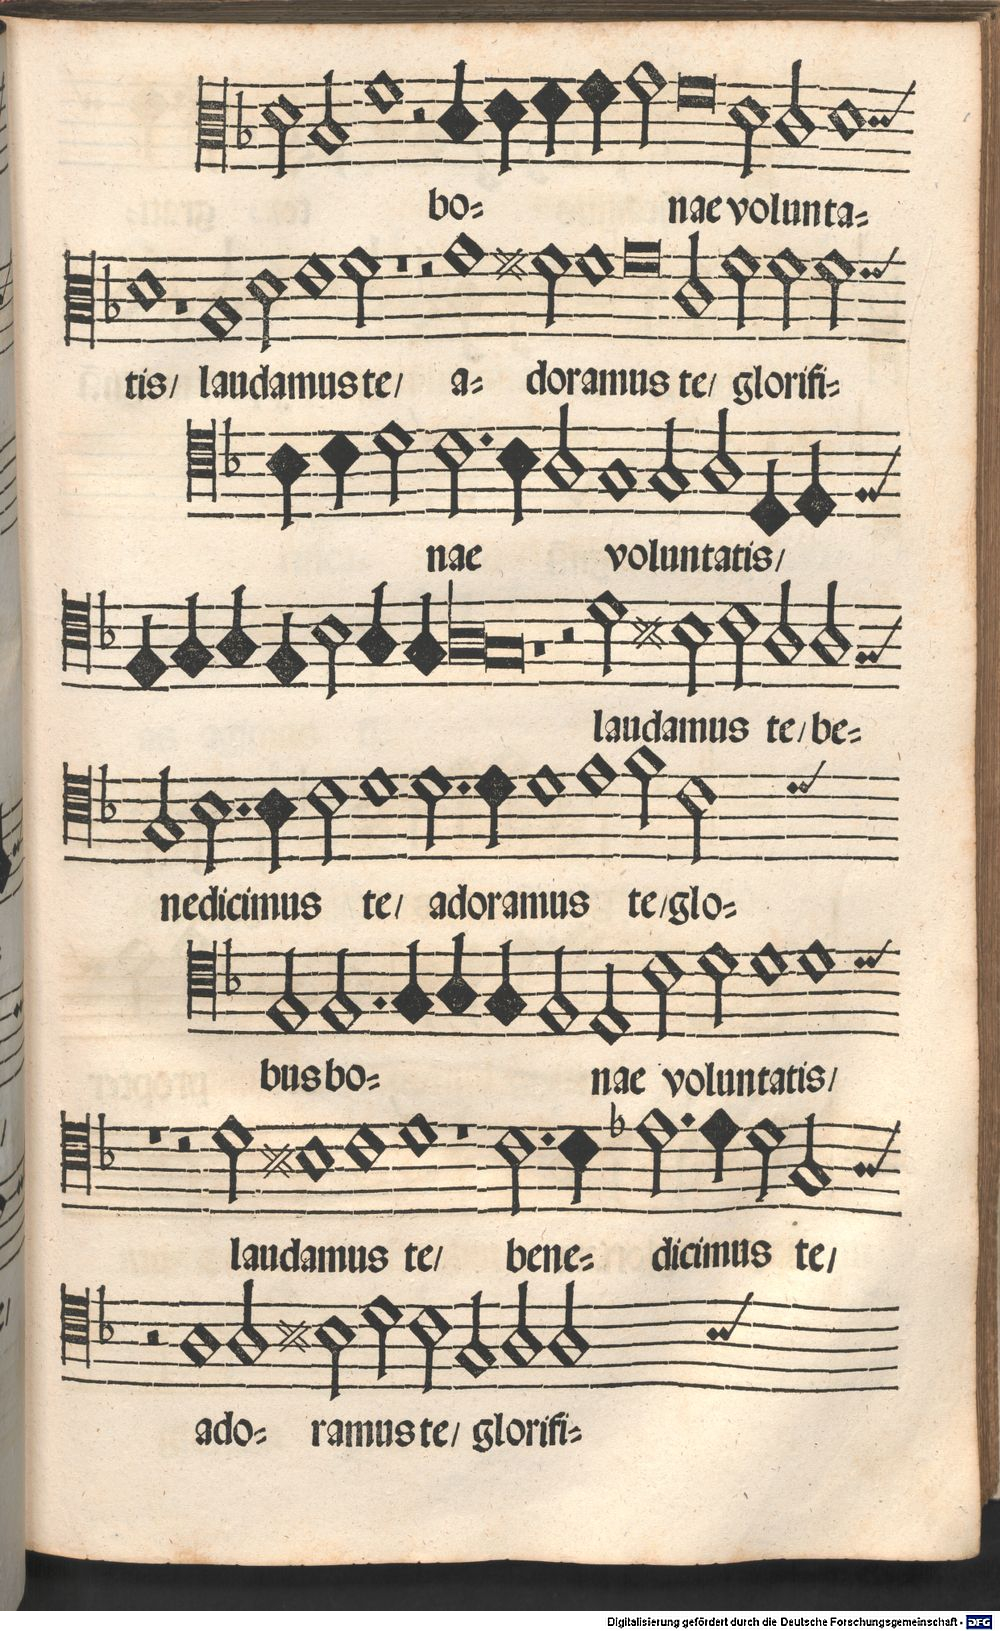 bo= nae volunta=
tis/ laudamus te/ a= doramus te/ glorifi=
nae voluntatis/
laudamus te/ be=
nedicimus te/ adoramus te/ glo=
bus bo= nae voluntatis/
laudamus te/ bene= dicimus te/
ado= ramus te/ glorifi=
Digitalisierung gefördert durch die Deutsche Forschungsgemeinschaft - DFG